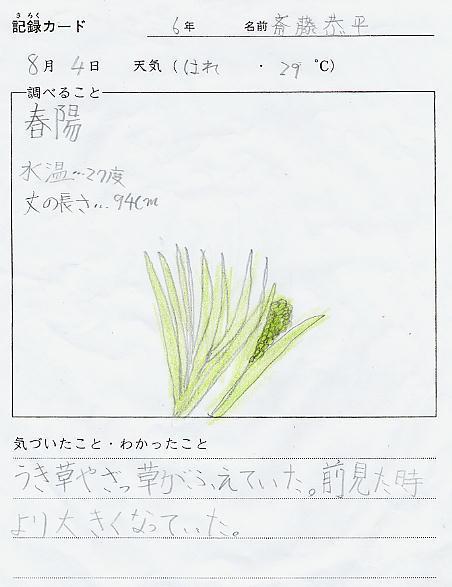 きろく
記録カード 6年 名前 斎藤恭平
8月4日 天気(はれ ・ 29℃)
調べること
春陽
水温…27度
丈の長さ…94cm
気づいたこと・わかったこと
うき草やざっ草がふえていた。前見た時
より大きくなっていた。